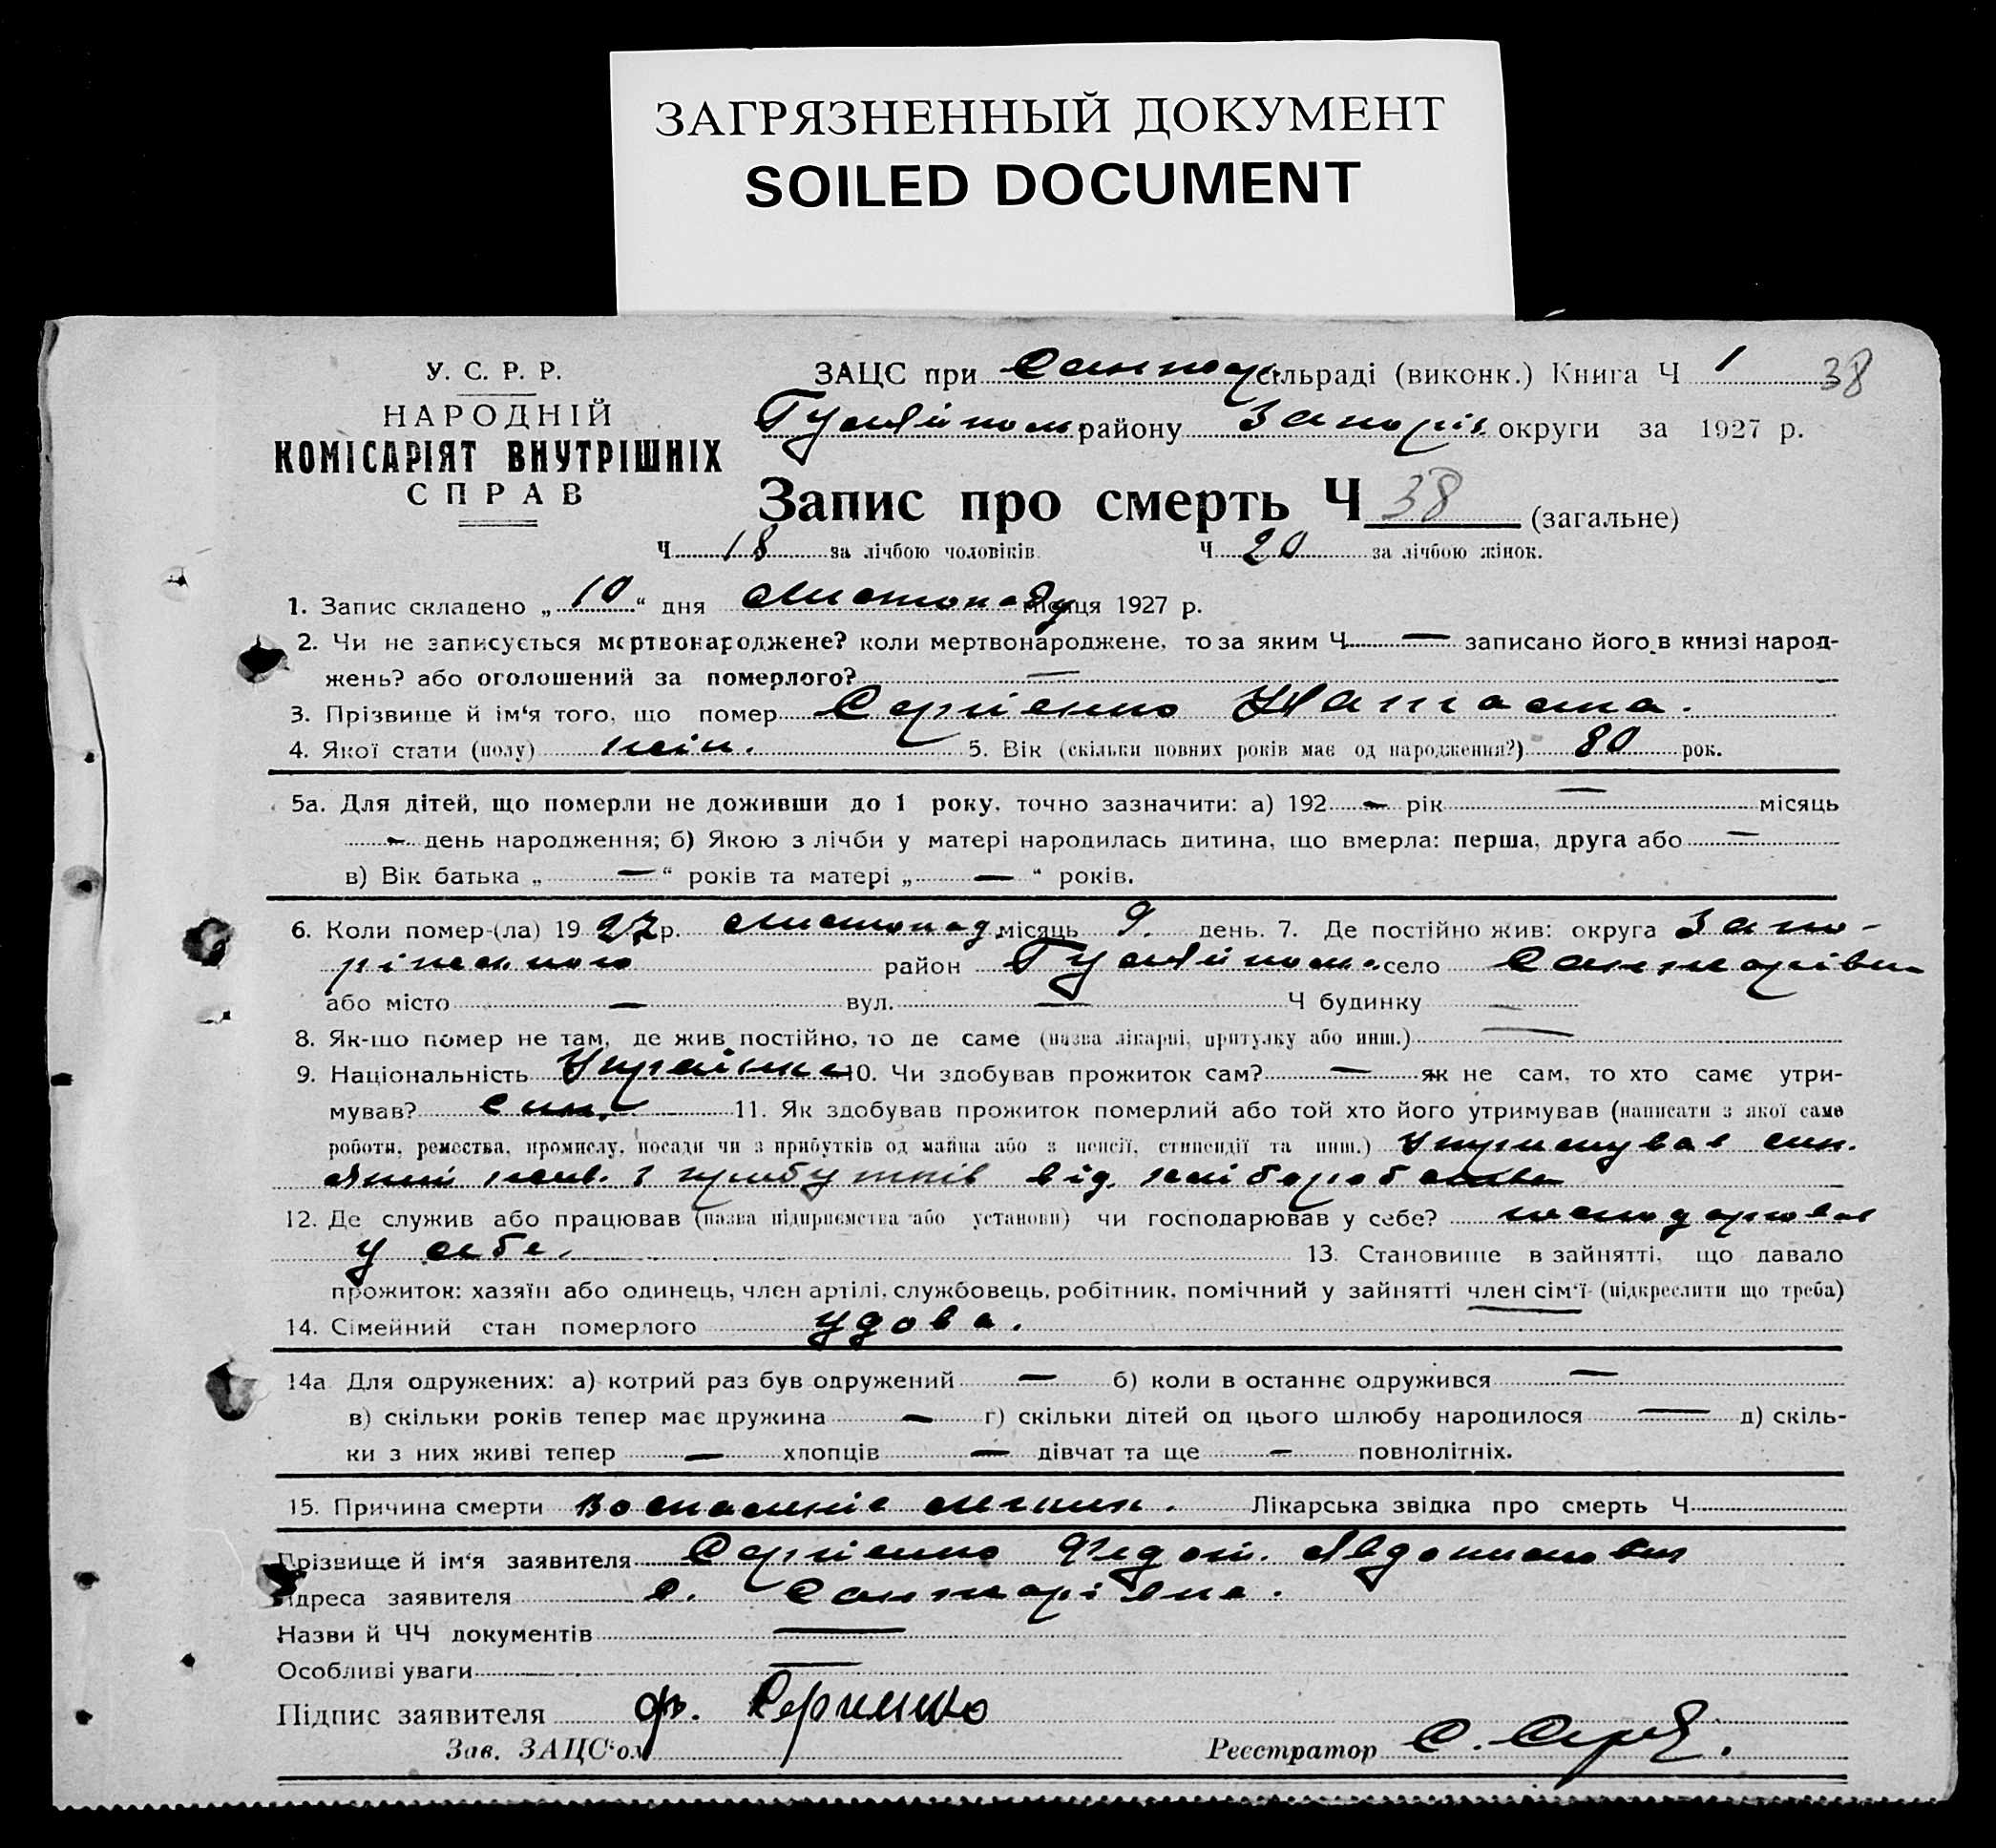 ЗАГРЯЗНЕННЫЙ ДОКУМЕНТ
SOILED DOCUMENT
У. С. Р. Р.
НАРОДНІЙ
КОМІСАРІЯТ ВНУТРІШНІХ
СПРАВ
ЗАЦС при Санжар. сільраді (виконк.) Книга Ч 1 38
Гуляйпольс. району Запоріз. округи за 1927 р.
Запис про смерть Ч 38 (загальне)
Ч 18 за лічбою чоловіків. Ч 20 за лічбою жінок.
1. Запис складено „ 10 “ дня Листопаду місяця 1927 р.
2. Чи не записується мертвонароджене? коли мертвонароджене, то за яким Ч — записано його в книзі народ-
жень? або оголошений за померлого? —
3. Прізвище й ім'я того, що помер Сергіенко
4. Якої стати (полу) жін. 5. Вік (скільки повних років має од народження?) 80 рок.
5а. Для дітей, що померли не доживши до 1 року, точно зазначити: а) 192 — рік — місяць
— день народження; б) Якою з лічби у матері народилась дитина, що вмерла: перша, друга або —
в) Вік батька „ — “ років та матері „ — “ років.
6. Коли помер-(ла) 1927 р. Листопад місяць 9. день. 7. Де постійно жив: округа Запо-
ріжського район Гуляйпольс. село Санжарівка
або місто — вул. — Ч будинку —
8. Як-що помер не там, де жив постійно, то де саме (назва лікарні, притулку або инш.) —
9. Національність Українка 10. Чи здобував прожиток сам? — як не сам, то хто саме утри-
мував? син. 11. Як здобував прожиток померлий або той хто його утримував (написати з якої саме
роботи, ремества, промислу, посади чи з прибутків од майна або з пенсії, стипендії та инш.) Утримував син.
який жив. з прибутків від хліборобства
12. Де служив або працював (назва підприємства або установи) чи господарював у себе? господарював
у себе. 13. Становище в зайнятті, що давало
прожиток: хазяїн або одинець, член артілі, службовець, робітник, помічний у зайнятті член сім'ї (підкреслити що треба)
14. Сімейний стан померлого удова.
14а Для одружених: а) котрий раз був одружений — б) коли в останнє одружився —
в) скільки років тепер має дружина — г) скільки дітей од цього шлюбу народилося — д) скіль-
ки з них живі тепер — хлопців — дівчат та ще — повнолітніх.
15. Причина смерти Воспаленіе легких. Лікарська звідка про смерть Ч
Прізвище й ім'я заявителя Сергіенко Федот.
Адреса заявителя с. Санжарівка.
Назви й ЧЧ документів —
Особливі уваги —
Підпис заявителя Ф. Сергиенко
Зав. ЗАЦС'ом Реєстратор